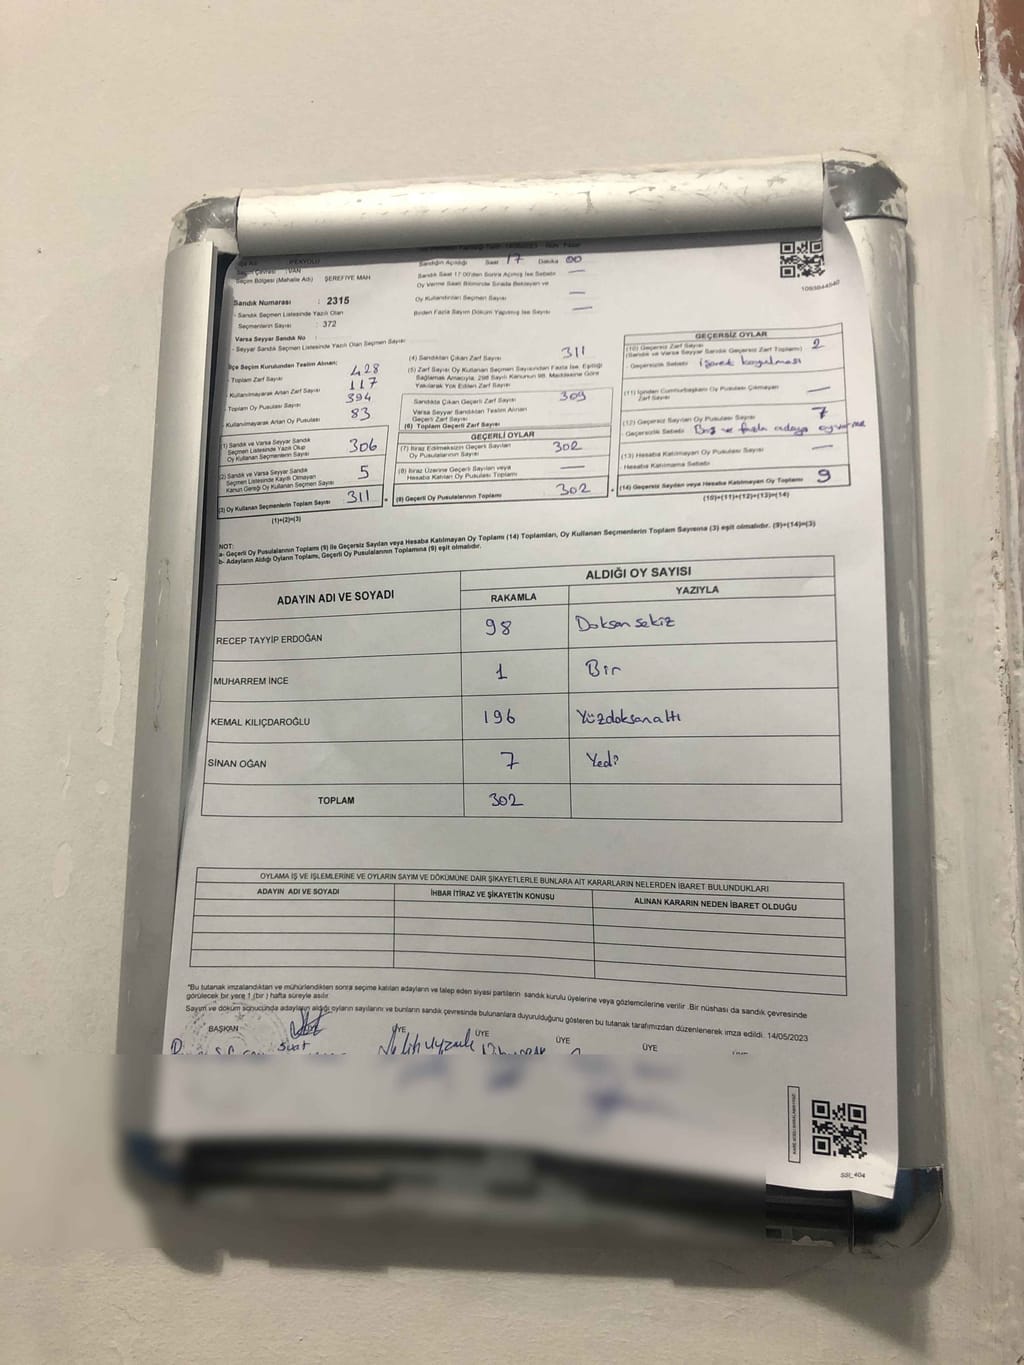 İPEKYOLU
Seçim Çevresi : VAN
Seçim Bölgesi (Mahalle Adı) ŞEREFİYE MAH
Sandık Numarası : 2315
- Sandık Seçmen Listesinde Yazılı Olan
Seçmenlerin Sayısı : 372
Varsa Seyyar Sandık No :
- Seyyar Sandık Seçmen Listesinde Yazılı Olan Seçmen Sayısı
Sandığın Açıldığı Saat 17 Dakika 00
Sandık Saat 17:00'den Sonra Açılmış İse Sebebi —
Oy Verme Saati Bitiminde Sırada Bekleyen ve
Oy Kullandırılan Seçmen Sayısı —
Birden Fazla Sayım Döküm Yapılmış İse Sayısı —
1093844540
İlçe Seçim Kurulundan Teslim Alınan;
- Toplam Zarf Sayısı 428
- Kullanılmayarak Artan Zarf Sayısı 117
- Toplam Oy Pusulası Sayısı 394
- Kullanılmayarak Artan Oy Pusulası 83
(1) Sandık ve Varsa Seyyar Sandık
Seçmen Listesinde Yazılı Olup
Oy Kullanan Seçmenlerin Sayısı 306
(2) Sandık ve Varsa Seyyar Sandık
Seçmen Listesinde Kayıtlı Olmayan
Kanun Gereği Oy Kullanan Seçmen Sayısı 5
(3) Oy Kullanan Seçmenlerin Toplam Sayısı 311
(1)+(2)=(3)
(4) Sandıktan Çıkan Zarf Sayısı 311
(5) Zarf Sayısı Oy Kullanan Seçmen Sayısından Fazla İse, Eşitliği
Sağlamak Amacıyla, 298 Sayılı Kanunun 98. Maddesine Göre
Yakılarak Yok Edilen Zarf Sayısı
Sandıkta Çıkan Geçerli Zarf Sayısı 309
Varsa Seyyar Sandıktan Teslim Alınan
Geçerli Zarf Sayısı
(6) Toplam Geçerli Zarf Sayısı
GEÇERLİ OYLAR
(7) İtiraz Edilmeksizin Geçerli Sayılan
Oy Pusulalarının Sayısı 302
(8) İtiraz Üzerine Geçerli Sayılan veya
Hesaba Katılan Oy Pusulası Toplamı —
(9) Geçerli Oy Pusulalarının Toplamı 302
GEÇERSİZ OYLAR
(10) Geçersiz Zarf Sayısı
(Sandık ve Varsa Seyyar Sandık Geçersiz Zarf Toplamı) 2
- Geçersizlik Sebebi İşaret koyulması
(11) İçinden Cumhurbaşkanı Oy Pusulası Çıkmayan
Zarf Sayısı —
(12) Geçersiz Sayılan Oy Pusulası Sayısı 7
- Geçersizlik Sebebi Boş ve fazla adaya oy verme
(13) Hesaba Katılmayan Oy Pusulası Sayısı —
Hesaba Katılmama Sebebi
(14) Geçersiz Sayılan veya Hesaba Katılmayan Oy Toplamı 9
(10)+(11)+(12)+(13)=(14)
NOT:
a- Geçerli Oy Pusulalarının Toplamı (9) ile Geçersiz Sayılan veya Hesaba Katılmayan Oy Toplamı (14) Toplamları, Oy Kullanan Seçmenlerin Toplam Sayısına (3) eşit olmalıdır. (9)+(14)=(3)
b- Adayların Aldığı Oyların Toplamı, Geçerli Oy Pusulalarının Toplamına (9) eşit olmalıdır.
ADAYIN ADI VE SOYADI ALDIĞI OY SAYISI
RAKAMLA YAZIYLA
RECEP TAYYİP ERDOĞAN 98 Doksan sekiz
MUHARREM İNCE 1 Bir
KEMAL KILIÇDAROĞLU 196 Yüzdoksanaltı
SİNAN OĞAN 7 Yedi
TOPLAM 302
OYLAMA İŞ VE İŞLEMLERİNE VE OYLARIN SAYIM VE DÖKÜMÜNE DAİR ŞİKAYETLERLE BUNLARA AİT KARARLARIN NELERDEN İBARET BULUNDUKLARI
ADAYIN ADI VE SOYADI İHBAR İTİRAZ VE ŞİKAYETİN KONUSU ALINAN KARARIN NEDEN İBARET OLDUĞU
*Bu tutanak imzalandıktan ve mühürlendikten sonra seçime katılan adayların ve talep eden siyasi partilerin sandık kurulu üyelerine veya gözlemcilerine verilir. Bir nüshası da sandık çevresinde
görülecek bir yere 1 (bir) hafta süreyle asılır.
Sayım ve döküm sonucunda adayların aldığı oyların sayılarını ve bunların sandık çevresinde bulunanlara duyurulduğunu gösteren bu tutanak tarafımızdan düzenlenerek imza edildi. 14/05/2023
BAŞKAN ÜYE ÜYE ÜYE ÜYE
Suat
SSİ_404